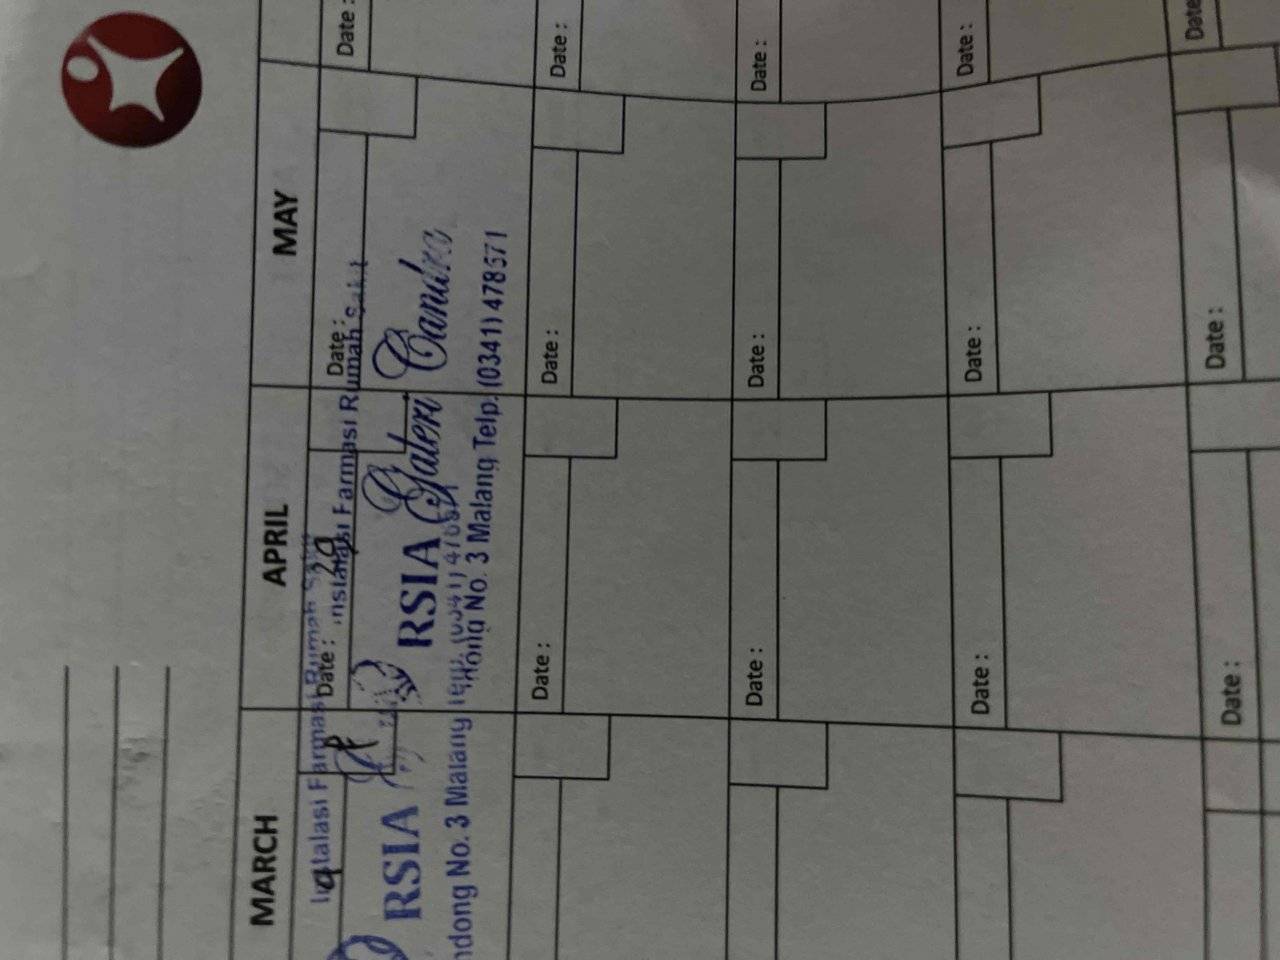 MARCH APRIL MAY
9 Date : 29 Date : Date :
Instalasi Farmasi Rumah Sakit
RSIA
ndong No. 3 Malang Telp. (0341) 478571
Instalasi Farmasi Rumah Sakit
RSIA Galeri Candra
No. 3 Malang Telp. (0341) 478571
Date : Date : Date :
Date : Date : Date :
Date : Date : Date :
Date : Date : Date